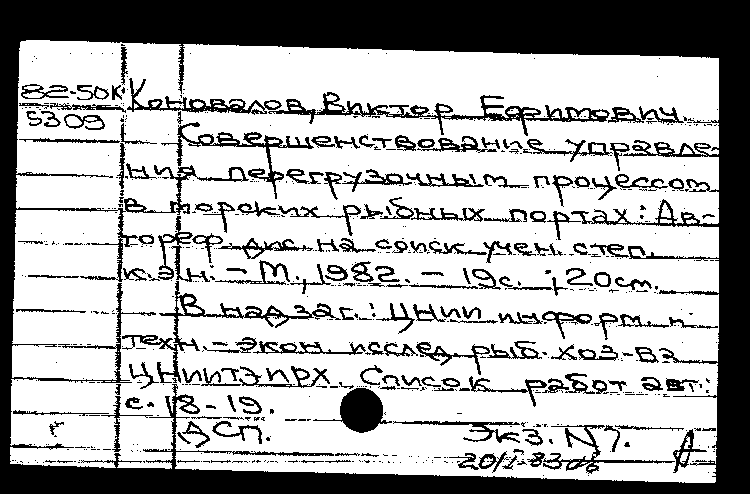 82-50К Коновалов, Виктор Ефимович.
5309 Совершенствование управле-
ния перегрузочным процессом
в морских рыбных портах: Ав-
тореф. дис. на соиск. учен. степ.
к.э.н. - М., 1982. - 19с. ; 20см.
В надзаг.: ЦНИИ информ. и
техн.-экон. исслед. рыб. хоз-ва
ЦНИИТЭИРХ. Список работ авт.:
с. 18-19.
г ДСП. Экз. N 7.
20/I-83 А